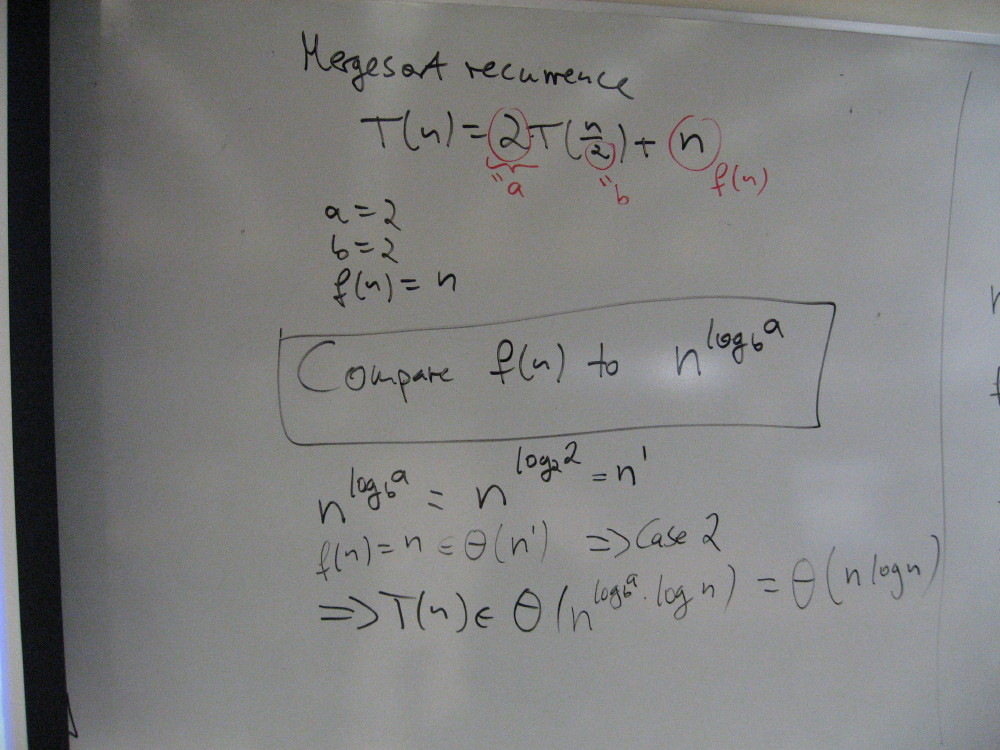 Mergesort recurrence
T(n) = 2T(n/2) + n
"a "b f(n)
a = 2
b = 2
f(n) = n
Compare f(n) to n^{log_b a}
n^{log_b a} = n^{log_2 2} = n^1
f(n) = n ∈ Θ(n^1) ⇒ Case 2
⇒ T(n) ∈ Θ(n^{log_b a} · log n) = Θ(n log n)